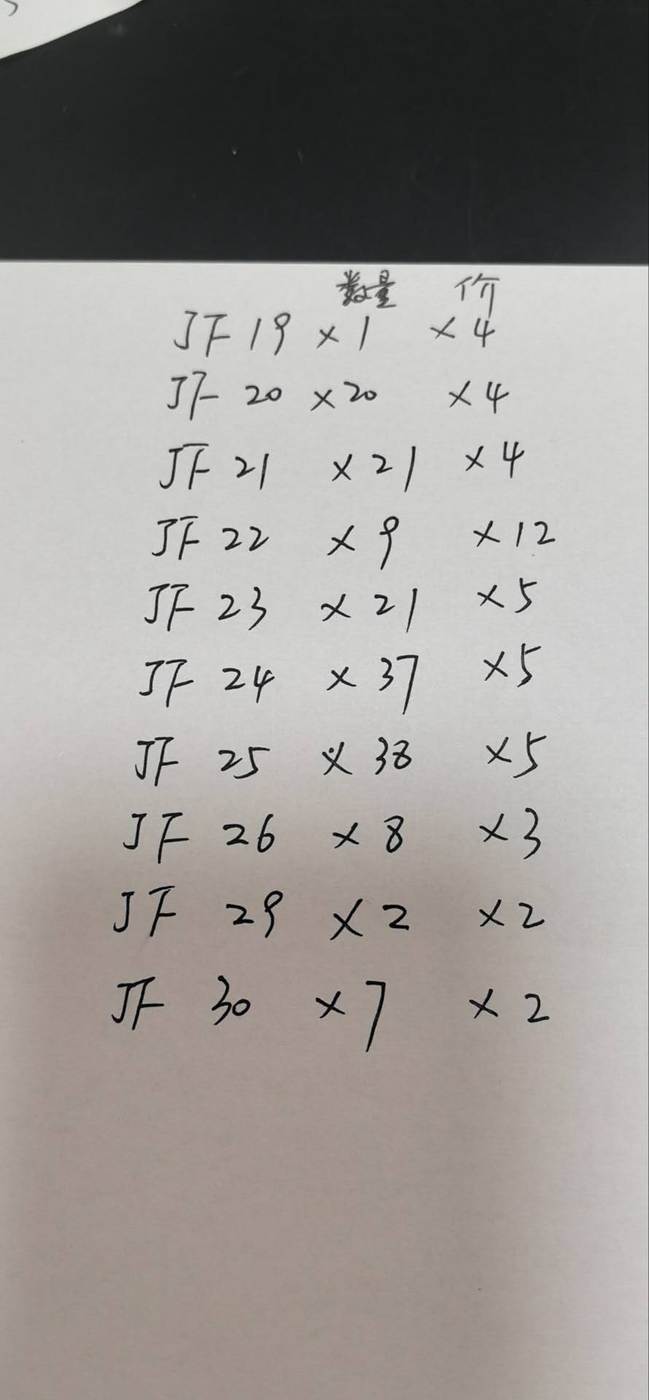 数量 价
JF 19 × 1 × 4
JF 20 × 20 × 4
JF 21 × 21 × 4
JF 22 × 9 × 12
JF 23 × 21 × 5
JF 24 × 37 × 5
JF 25 × 38 × 5
JF 26 × 8 × 3
JF 29 × 2 × 2
JF 30 × 7 × 2